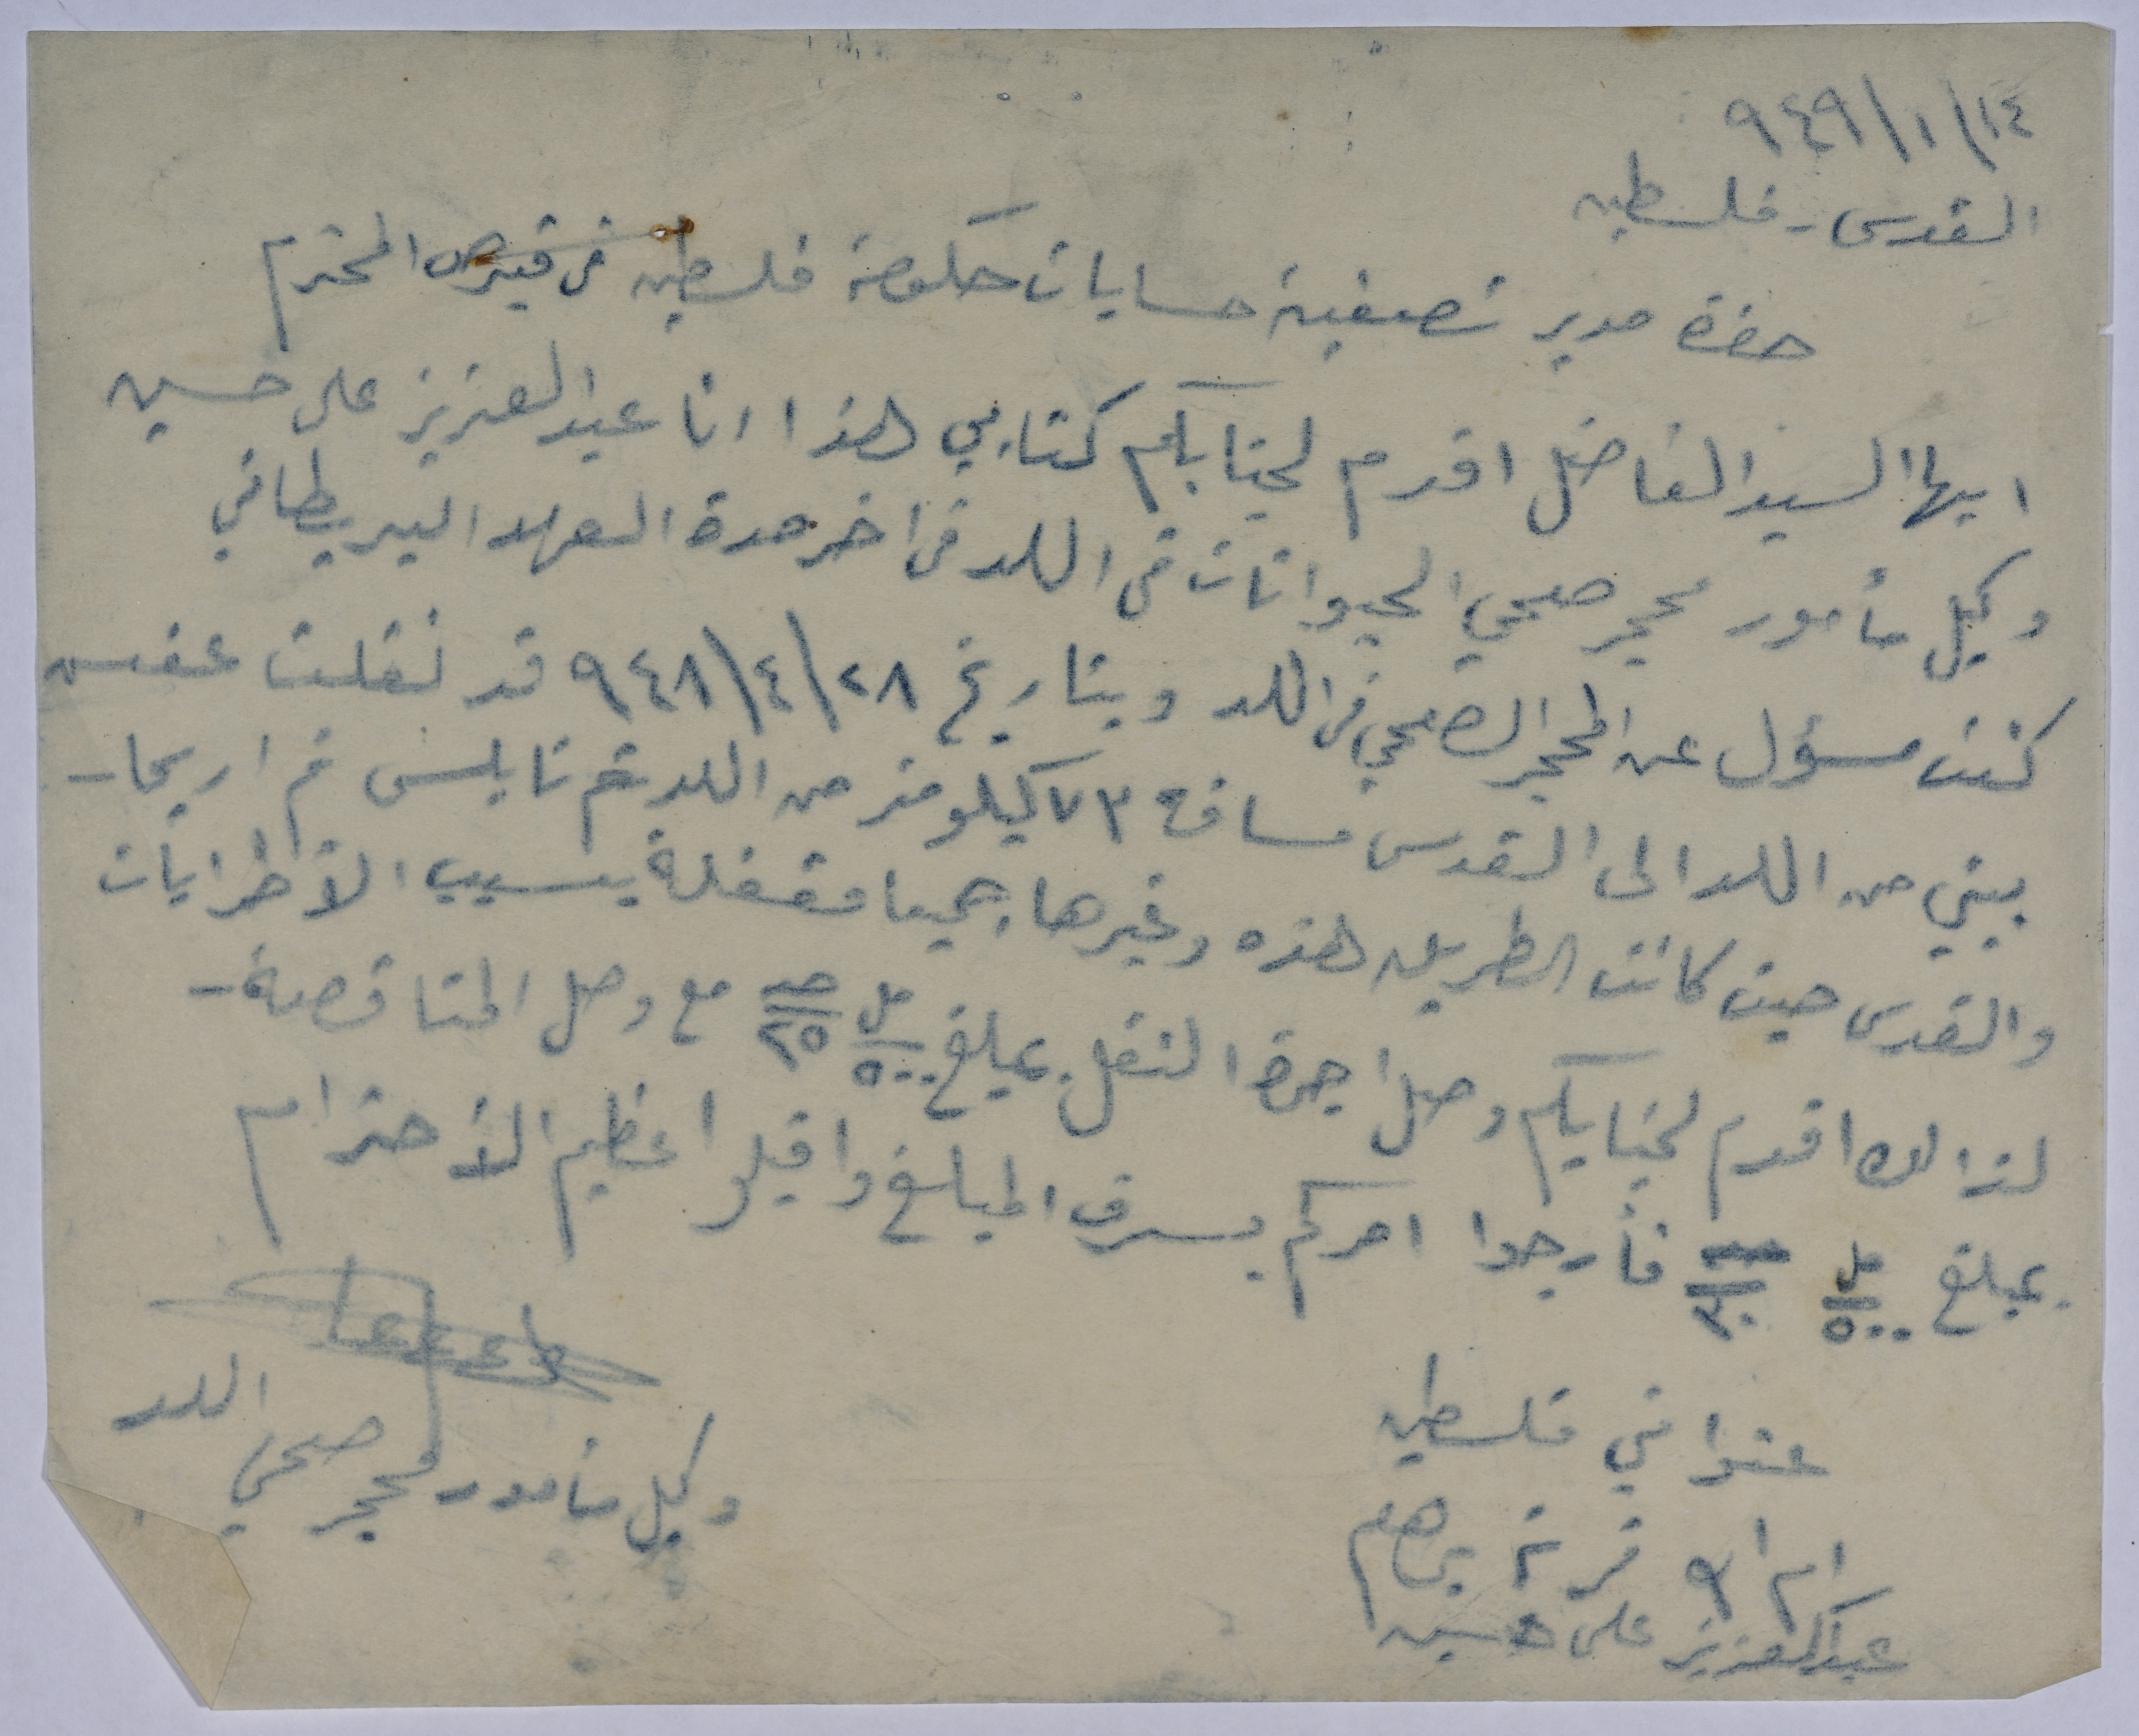 ١٤/١/٩٤٩
القدس - فلسطين
حضرة مدير تصفية حسابات حكومة فلسطين في قبرص المحترم
ايها السيد الفاضل اقدم لجنابكم كتابي هذا انا عبد العزيز على حسين
وكيل مأمور محجر صحي الحيوانات في اللد في اخر مدة العهد البريطاني
كنت مسؤل عن المحجر الصحي في اللد وبتاريخ ٢٨/٤/٩٤٨ قد نقلت عفش
بيتي من اللد الى القدس مسافة ٧٣ كيلومتر من اللد ثم نابلس ثم اريحا -
والقدس حيث كانت الطريق هذه وغيرها جميعا مقفلة بسبب الأظرابات
لذالك اقدم لجنابكم وصل اجرة النقل بمبلغ مل ٥٠٠ جنيه ٢٥ مع وصل المناقصة -
بمبلغ مل ٥٠٠ جنيه ٣٠ فأرجوا امركم بسرف المبلغ واقبلو اعظيم الأحترام
عنواني فلسطين
رام الله قرية برهام
عبد العزيز على حسين
وكيل مأمور محجر صحي اللد